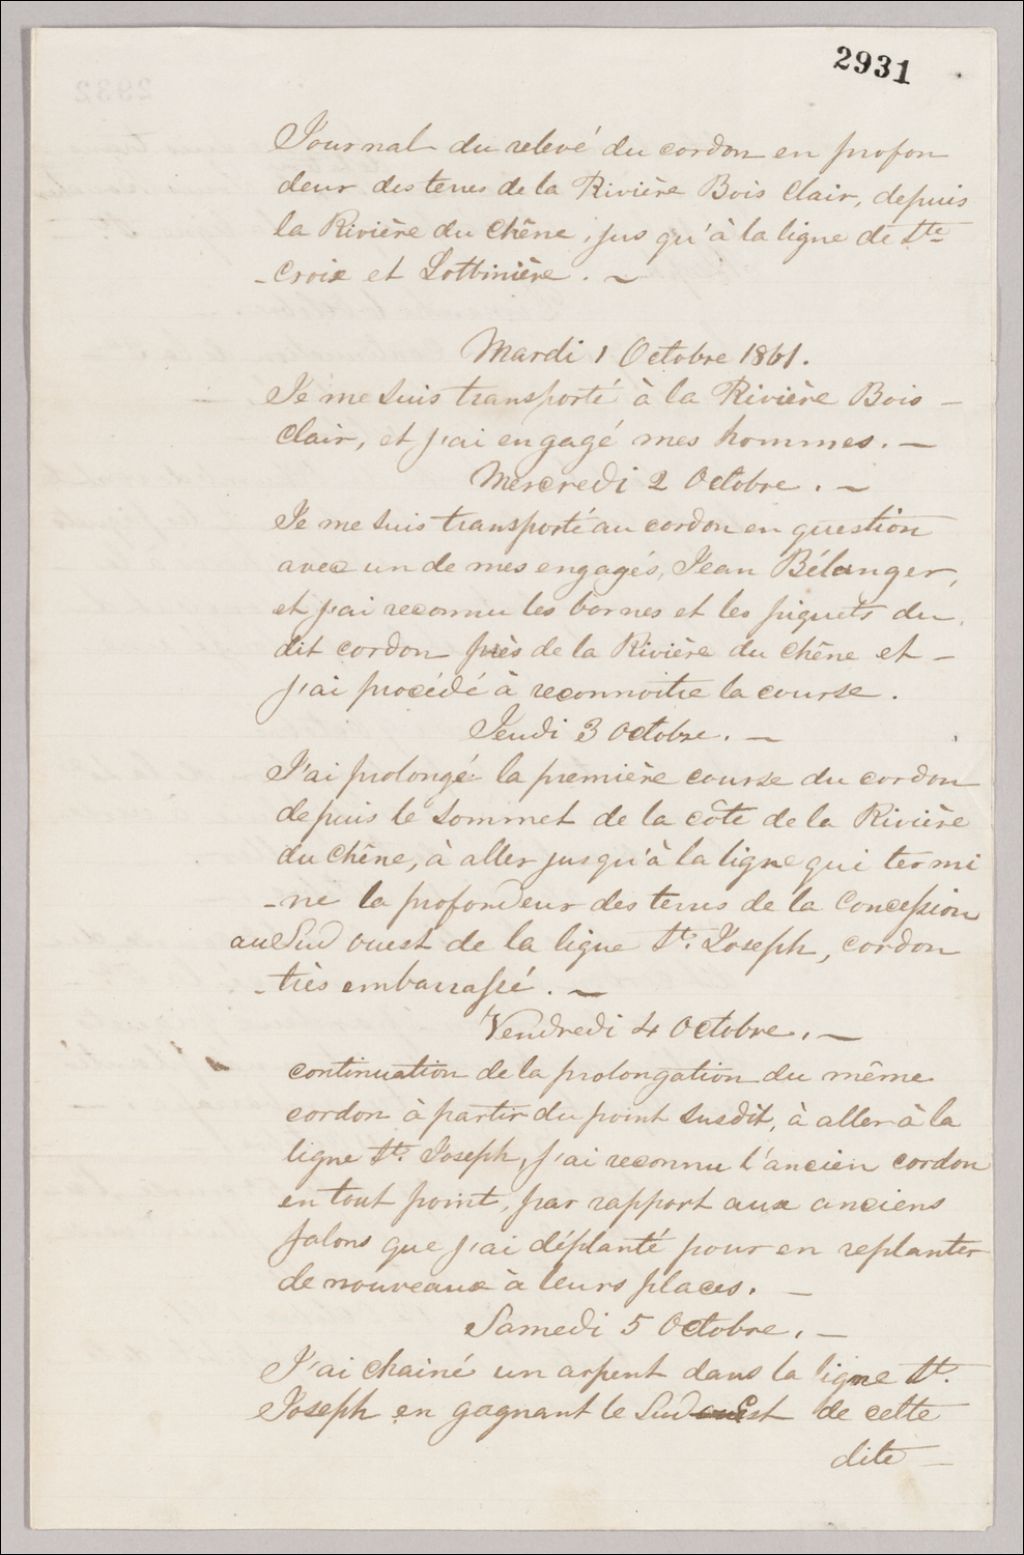 2931
Journal du relevé du cordon en profon
deur des terres de la Rivière Bois Clair, depuis
la Rivière du Chêne, jus qu'à la ligne de Ste
-Croix et Lotbinière. ~
Mardi 1 Octobre 1861.
Je me suis transporté à la Rivière Bois -
Clair, et j'ai engagé mes hommes. -
Mercredi 2 Octobre. -
Je me suis transporté au cordon en question
avec un de mes engagés, Jean Bélanger,
et j'ai reconnu les bornes et les piquets du
dit cordon près de la Rivière du Chêne et -
j'ai procédé à reconnoitre la course.
Jeudi 3 Octobre. -
J'ai prolongé la première course du cordon
depuis le sommet de la côte de la Rivière
du Chêne, à aller jusqu'à la ligne qui termi
-ne la profondeur des terres de la Concession
au Sud ouest de la ligne St. Joseph, cordon
-très embarrassé. ~
Vendredi 4 Octobre. -
continuation de la prolongation du même
cordon à partir du point susdit, à aller à la
ligne St. Joseph, j'ai reconnu l'ancien cordon
en tout point, par rapport aux anciens
jalons que j'ai déplanté pour en replanter
de nouveaux à leurs places. -
Samedi 5 Octobre. -
J'ai chainé un arpent dans la ligne St.
Joseph en gagnant le Sud Est de cette
dite -